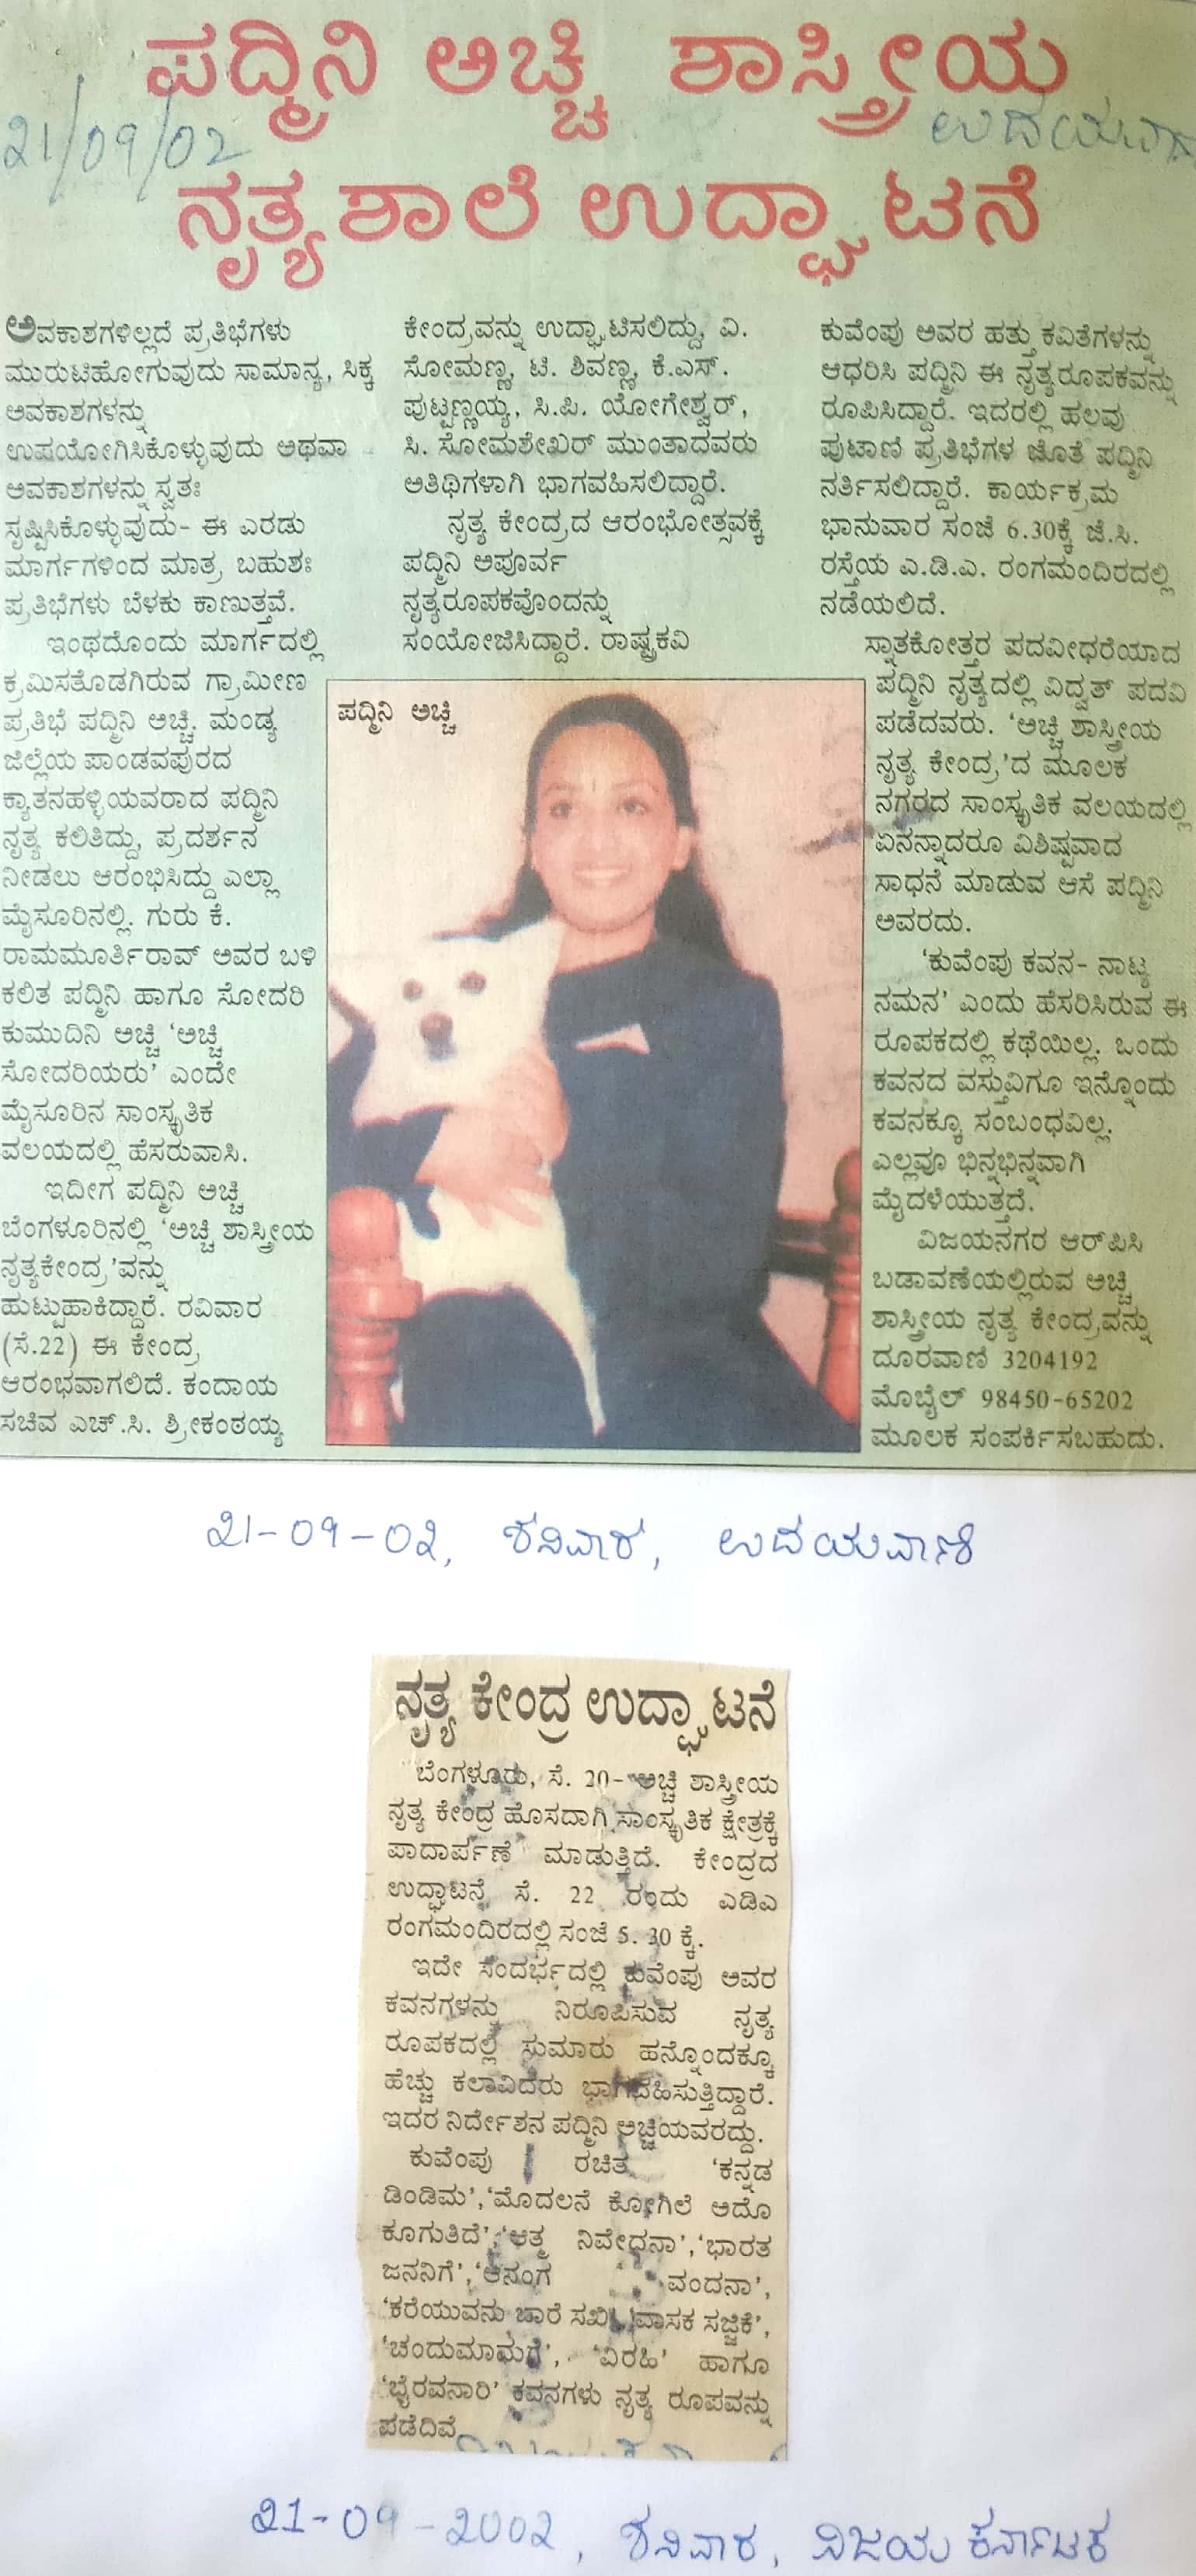 ಪದ್ಮಿನಿ ಅಚ್ಚಿ ಶಾಸ್ತ್ರೀಯ
21/09/02
ಉದಯವಾ
ನೃತ್ಯಶಾಲೆ ಉದ್ಘಾಟನೆ
ಅವಕಾಶಗಳಿಲ್ಲದೆ ಪ್ರತಿಭೆಗಳು
ಮುರುಟಿಹೋಗುವುದು ಸಾಮಾನ್ಯ, ಸಿಕ್ಕ
ಅವಕಾಶಗಳನ್ನು
ಉಪಯೋಗಿಸಿಕೊಳ್ಳುವುದು ಅಥವಾ
ಅವಕಾಶಗಳನ್ನು ಸ್ವತಃ
ಸೃಷ್ಟಿಸಿಕೊಳ್ಳುವುದು- ಈ ಎರಡು
ಮಾರ್ಗಗಳಿಂದ ಮಾತ್ರ ಬಹುಶಃ
ಪ್ರತಿಭೆಗಳು ಬೆಳಕು ಕಾಣುತ್ತವೆ.
ಇಂಥದೊಂದು ಮಾರ್ಗದಲ್ಲಿ
ಕ್ರಮಿಸತೊಡಗಿರುವ ಗ್ರಾಮೀಣ
ಪ್ರತಿಭೆ ಪದ್ಮಿನಿ ಅಚ್ಚಿ. ಮಂಡ್ಯ
ಜಿಲ್ಲೆಯ ಪಾಂಡವಪುರದ
ಕ್ಯಾತನಹಳ್ಳಿಯವರಾದ ಪದ್ಮಿನಿ
ನೃತ್ಯ ಕಲಿತಿದ್ದು, ಪ್ರದರ್ಶನ
ನೀಡಲು ಆರಂಭಿಸಿದ್ದು ಎಲ್ಲಾ
ಮೈಸೂರಿನಲ್ಲಿ. ಗುರು ಕೆ.
ರಾಮಮೂರ್ತಿರಾವ್ ಅವರ ಬಳಿ
ಕಲಿತ ಪದ್ಮಿನಿ ಹಾಗೂ ಸೋದರಿ
ಕುಮುದಿನಿ ಅಚ್ಚಿ 'ಅಚ್ಚಿ
ಸೋದರಿಯರು' ಎಂದೇ
ಮೈಸೂರಿನ ಸಾಂಸ್ಕೃತಿಕ
ವಲಯದಲ್ಲಿ ಹೆಸರುವಾಸಿ.
ಇದೀಗ ಪದ್ಮಿನಿ ಅಚ್ಚಿ
ಬೆಂಗಳೂರಿನಲ್ಲಿ 'ಅಚ್ಚಿ ಶಾಸ್ತ್ರೀಯ
ನೃತ್ಯಕೇಂದ್ರ'ವನ್ನು
ಹುಟ್ಟುಹಾಕಿದ್ದಾರೆ. ರವಿವಾರ
(ಸೆ.22) ಈ ಕೇಂದ್ರ
ಆರಂಭವಾಗಲಿದೆ. ಕಂದಾಯ
ಸಚಿವ ಎಚ್.ಸಿ. ಶ್ರೀಕಂಠಯ್ಯ
ಕೇಂದ್ರವನ್ನು ಉದ್ಘಾಟಿಸಲಿದ್ದು, ವಿ.
ಸೋಮಣ್ಣ, ಟಿ. ಶಿವಣ್ಣ, ಕೆ.ಎಸ್.
ಪುಟ್ಟಣ್ಣಯ್ಯ, ಸಿ.ಪಿ. ಯೋಗೇಶ್ವರ್,
ಸಿ. ಸೋಮಶೇಖರ್ ಮುಂತಾದವರು
ಅತಿಥಿಗಳಾಗಿ ಭಾಗವಹಿಸಲಿದ್ದಾರೆ.
ನೃತ್ಯ ಕೇಂದ್ರದ ಆರಂಭೋತ್ಸವಕ್ಕೆ
ಪದ್ಮಿನಿ ಅಪೂರ್ವ
ನೃತ್ಯರೂಪಕವೊಂದನ್ನು
ಸಂಯೋಜಿಸಿದ್ದಾರೆ. ರಾಷ್ಟ್ರಕವಿ
ಪದ್ಮಿನಿ ಅಚ್ಚಿ
ಕುವೆಂಪು ಅವರ ಹತ್ತು ಕವಿತೆಗಳನ್ನು
ಆಧರಿಸಿ ಪದ್ಮಿನಿ ಈ ನೃತ್ಯರೂಪಕವನ್ನು
ರೂಪಿಸಿದ್ದಾರೆ. ಇದರಲ್ಲಿ ಹಲವು
ಪುಟಾಣಿ ಪ್ರತಿಭೆಗಳ ಜೊತೆ ಪದ್ಮಿನಿ
ನರ್ತಿಸಲಿದ್ದಾರೆ. ಕಾರ್ಯಕ್ರಮ
ಭಾನುವಾರ ಸಂಜೆ 6.30ಕ್ಕೆ ಜೆ.ಸಿ.
ರಸ್ತೆಯ ಎ.ಡಿ.ಎ. ರಂಗಮಂದಿರದಲ್ಲಿ
ನಡೆಯಲಿದೆ.
ಸ್ನಾತಕೋತ್ತರ ಪದವೀಧರೆಯಾದ
ಪದ್ಮಿನಿ ನೃತ್ಯದಲ್ಲಿ ವಿದ್ವತ್ ಪದವಿ
ಪಡೆದವರು. 'ಅಚ್ಚಿ ಶಾಸ್ತ್ರೀಯ
ನೃತ್ಯ ಕೇಂದ್ರ'ದ ಮೂಲಕ
ನಗರದ ಸಾಂಸ್ಕೃತಿಕ ವಲಯದಲ್ಲಿ
ಏನನ್ನಾದರೂ ವಿಶಿಷ್ಟವಾದ
ಸಾಧನೆ ಮಾಡುವ ಆಸೆ ಪದ್ಮಿನಿ
ಅವರದು.
'ಕುವೆಂಪು ಕವನ- ನಾಟ್ಯ
ನಮನ' ಎಂದು ಹೆಸರಿಸಿರುವ ಈ
ರೂಪಕದಲ್ಲಿ ಕಥೆಯಿಲ್ಲ. ಒಂದು
ಕವನದ ವಸ್ತುವಿಗೂ ಇನ್ನೊಂದು
ಕವನಕ್ಕೂ ಸಂಬಂಧವಿಲ್ಲ.
ಎಲ್ಲವೂ ಭಿನ್ನಭಿನ್ನವಾಗಿ
ಮೈದಳೆಯುತ್ತದೆ.
ವಿಜಯನಗರ ಆರ್‌ಪಿಸಿ
ಬಡಾವಣೆಯಲ್ಲಿರುವ ಅಚ್ಚಿ
ಶಾಸ್ತ್ರೀಯ ನೃತ್ಯ ಕೇಂದ್ರವನ್ನು
ದೂರವಾಣಿ 3204192
ಮೊಬೈಲ್ 98450-65202
ಮೂಲಕ ಸಂಪರ್ಕಿಸಬಹುದು.
21-09-02, ಶನಿವಾರ, ಉದಯವಾಣಿ
ನೃತ್ಯ ಕೇಂದ್ರ ಉದ್ಘಾಟನೆ
ಬೆಂಗಳೂರು, ಸೆ. 20- ಅಚ್ಚಿ ಶಾಸ್ತ್ರೀಯ
ನೃತ್ಯ ಕೇಂದ್ರ ಹೊಸದಾಗಿ ಸಾಂಸ್ಕೃತಿಕ ಕ್ಷೇತ್ರಕ್ಕೆ
ಪಾದಾರ್ಪಣೆ ಮಾಡುತ್ತಿದೆ. ಕೇಂದ್ರದ
ಉದ್ಘಾಟನೆ ಸೆ. 22 ರಂದು ಎಡಿಎ
ರಂಗಮಂದಿರದಲ್ಲಿ ಸಂಜೆ 5. 30 ಕ್ಕೆ.
ಇದೇ ಸಂದರ್ಭದಲ್ಲಿ ಕುವೆಂಪು ಅವರ
ಕವನಗಳನ್ನು ನಿರೂಪಿಸುವ ನೃತ್ಯ
ರೂಪಕದಲ್ಲಿ ಸುಮಾರು ಹನ್ನೊಂದಕ್ಕೂ
ಹೆಚ್ಚು ಕಲಾವಿದರು ಭಾಗವಹಿಸುತ್ತಿದ್ದಾರೆ.
ಇದರ ನಿರ್ದೇಶನ ಪದ್ಮಿನಿ ಅಚ್ಚಿಯವರದ್ದು.
ಕುವೆಂಪು ರಚಿತ 'ಕನ್ನಡ
ಡಿಂಡಿಮ','ಮೊದಲನೆ ಕೋಗಿಲೆ ಅದೊ
ಕೂಗುತಿದೆ','ಆತ್ಮ ನಿವೇಧನಾ','ಭಾರತ
ಜನನಿಗೆ','ಆನಂಗ ವಂದನಾ',
'ಕರೆಯುವನು ಬಾರೆ ಸಖಿ ವಾಸಕ ಸಜ್ಜಿಕೆ',
'ಚಂದುಮಾಮಗೆ', 'ವಿರಹಿ' ಹಾಗೂ
'ಭೈರವನಾರಿ' ಕವನಗಳು ನೃತ್ಯ ರೂಪವನ್ನು
ಪಡೆದಿವೆ
21-09-2002, ಶನಿವಾರ, ವಿಜಯ ಕರ್ನಾಟಕ